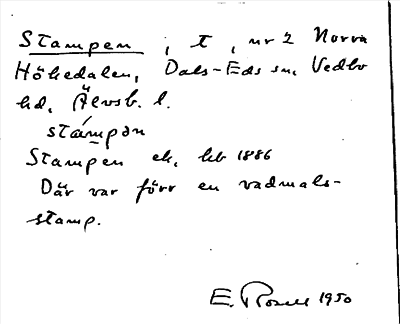 Stampen, t, nr 2 Norra
Höhedalen, Dals-Eds sn, Vedbo
hd, Älvsb. l.
stámpən
Stampen ek, hb 1886
Där var förr en vadmals-
stamp.
E. Rosell 1950